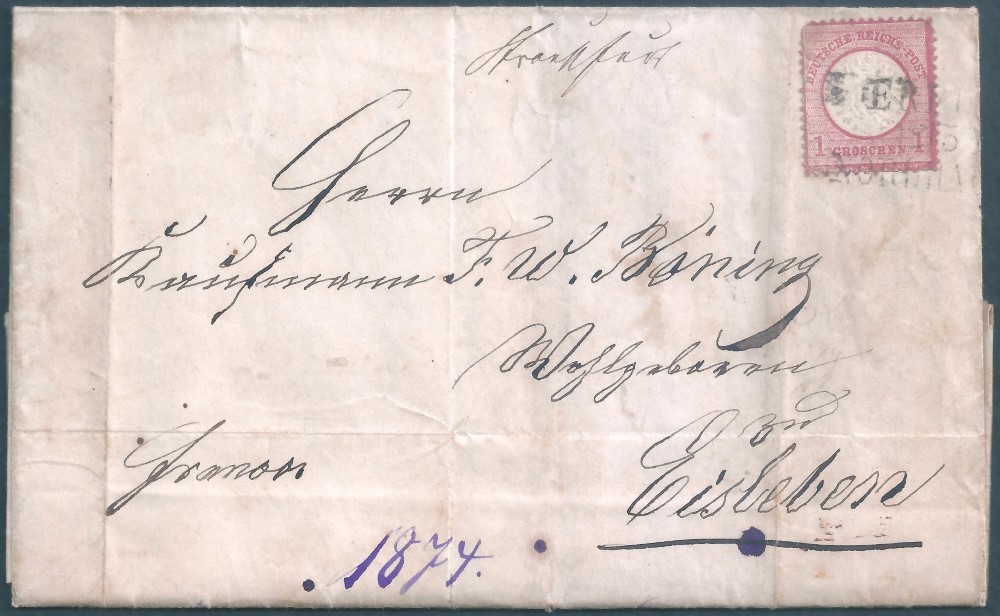 DEUTSCHE REICHS-POST
E
1 GROSCHEN 1
Herrn
Kaufmann F. W. Böning
Wohlgeboren
zu
Eisleben
franco.
1874.